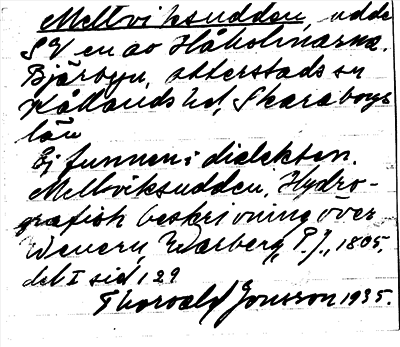 Mellviksudden, udde
SV en av Håholmarna.
Bjärbyn, Otterstads sn
Kållands hd, Skaraborgs
län
Ej funnen i dialekten.
Mellviksudden, Hydro-
grafisk beskrivning över
Wenern, Warberg, P. J., 1805,
del I sid 129
Thorvald Jonsson 1935.